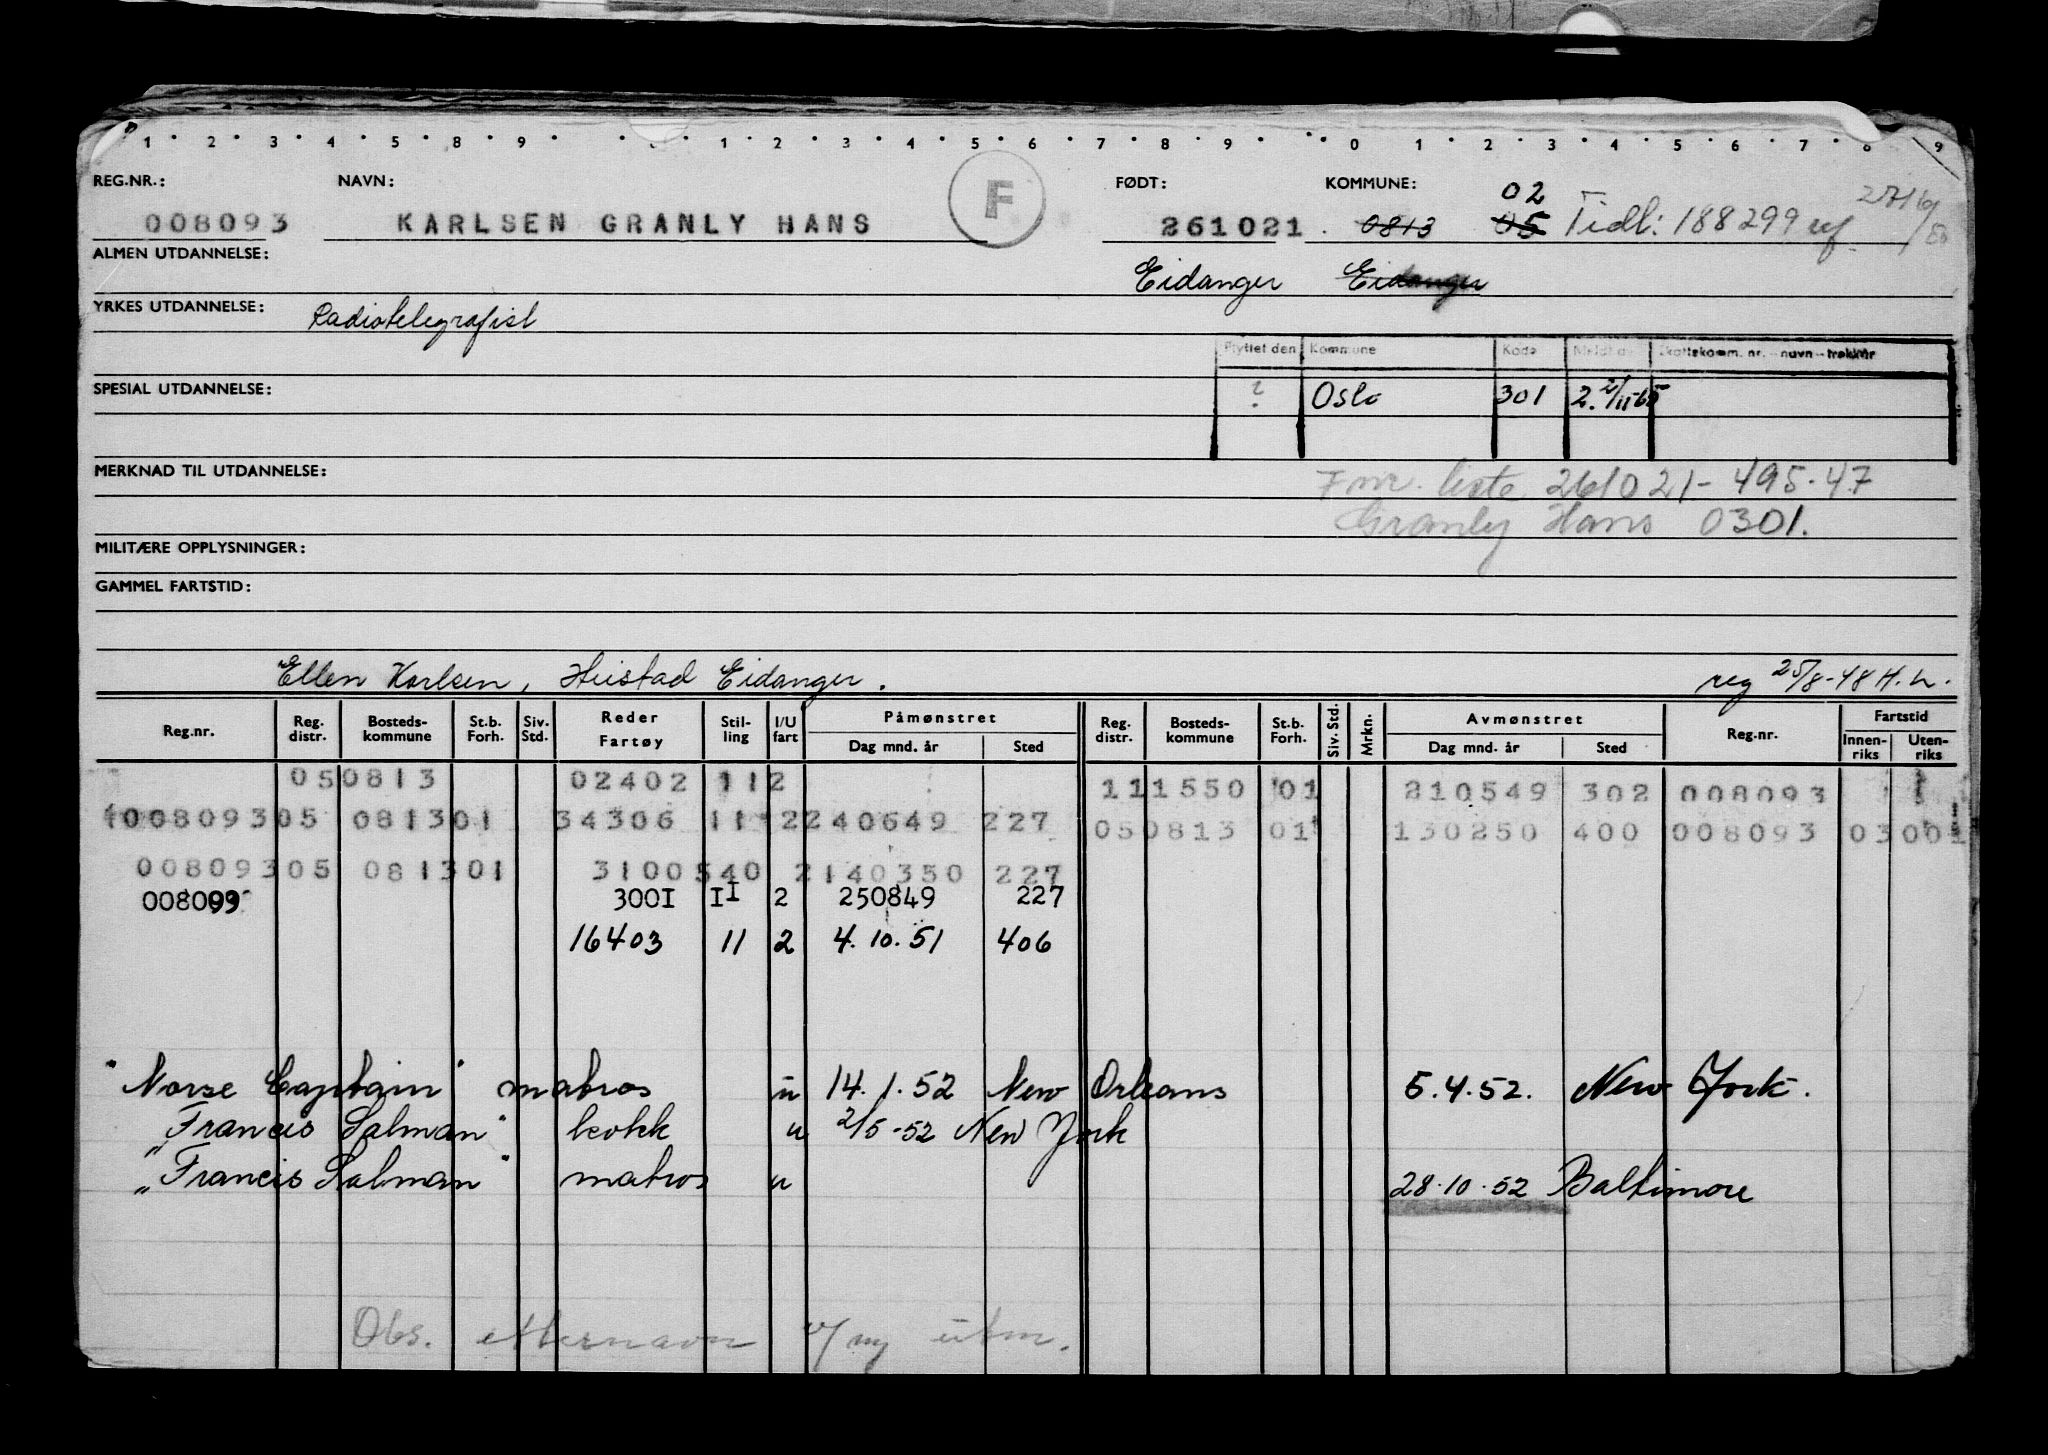 1 2 3 4 5 8 9 1 2 3 4 5 6 7 8 9 0 1 2 3 4 5 6 7 8 9
REG.NR.: NAVN: F FØDT: KOMMUNE: 02
008093 KARLSEN GRANLY HANS 261021 0813 05 Tidl: 188299
ALMEN UTDANNELSE:
Eidanger Eidanger
YRKES UTDANNELSE: Radiotelegrafist
Flyttet den Kommune Kode Meldt av Skattekomm. nr. - navn - trekknr
SPESIAL UTDANNELSE: ? Oslo 301 2. 2/11-65
MERKNAD TIL UTDANNELSE:
Fnr. liste 261021-495-47
Granly Hans 0301.
MILITÆRE OPPLYSNINGER:
GAMMEL FARTSTID:
Ellen Karlsen, Heistad Eidanger. reg 25/8-48 H.L.
Reg.nr. Reg. distr. Bosteds-kommune St.b. Forh. Siv. Std. Reder Fartøy Stil-ling I/U fart Påmønstret Dag mnd. år Sted Reg. distr. Bosteds-kommune St.b. Forh. Siv. Std. Mrkn. Avmønstret Dag mnd. år Sted Reg.nr. Fartstid Innen-riks Uten-riks
050813 02402 112 111550 01 210549 302 008093
00809305 081301 34306 11 2240649 227 050813 01 130250 400 008093 03001
00809305 081301 3100540 2140350 227
008093 300I II 2 250849 227
16403 11 2 4.10.51 406
"Norse Captain" matros u 14.1.52 New Orleans 5.4.52. New York.
"Francis Salman" kokk u 2/5-52 New York
"Francis Salman" matros u 28.10.52 Baltimore
Obs. etternavn v/ny utm.